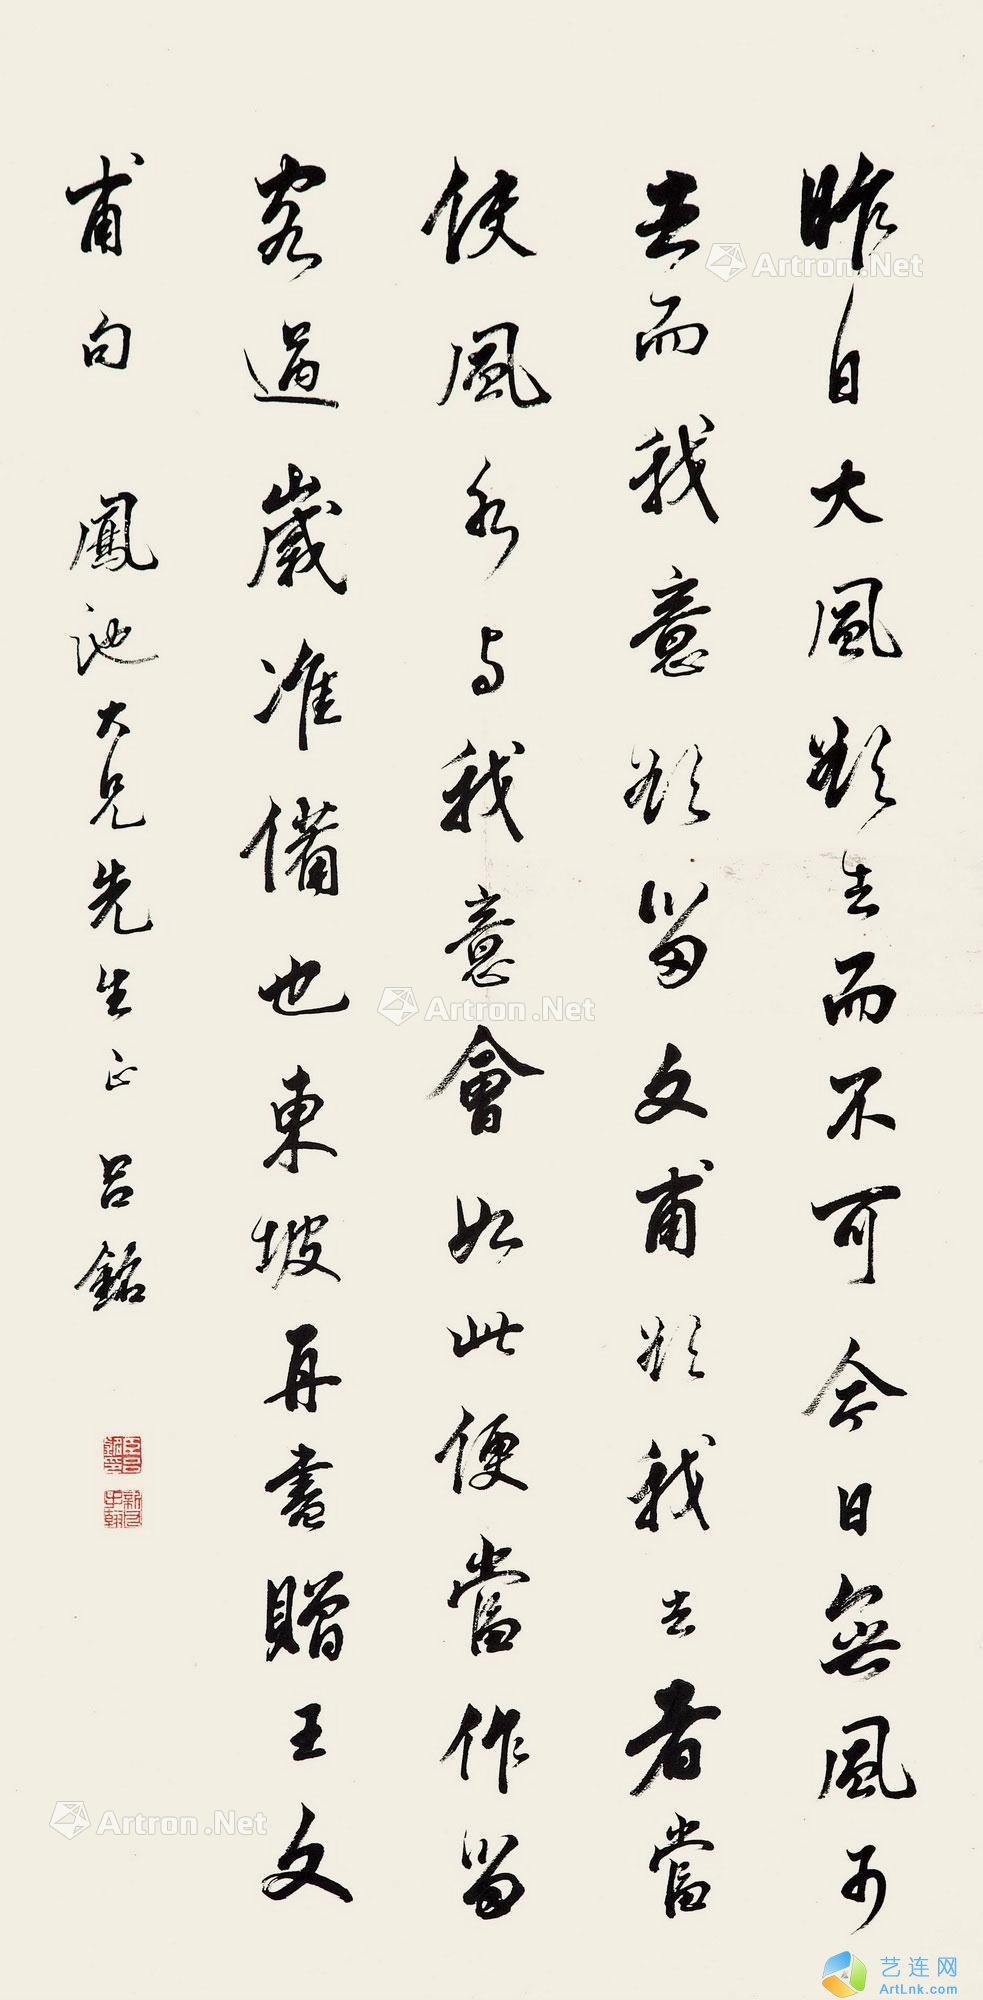 昨日大風欲去而不可今日無風可
去而我意欲留文甫欲我去者當
使風水與我意會如此便當作留
客過歲准備也東坡再書贈王文
甫句 鳳池大兄先生正 呂銘
Artron.Net
Artron.Net
Artron.Net
艺连网
ArtLnk.com